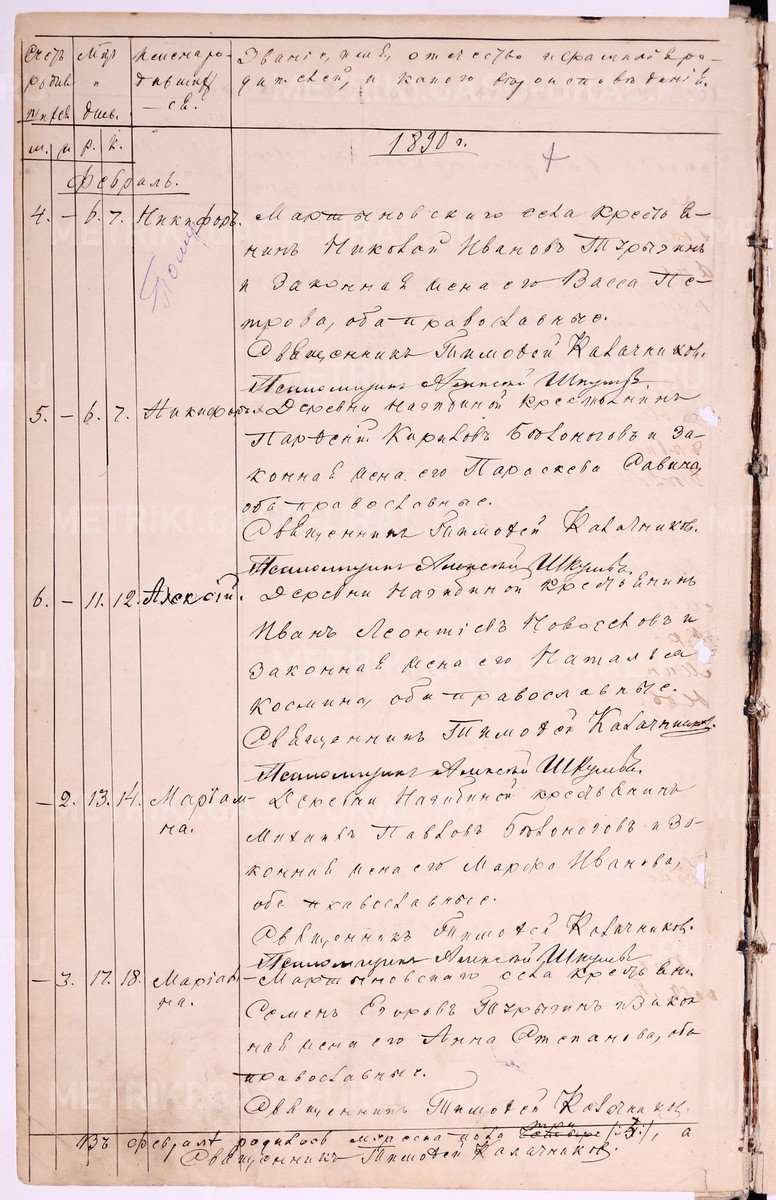 Счетъ родив
Мѣц и день.
Имена родившихся.
Званіе, имя, отчество и фамилія ро-
дителей, и какого вѣроисповѣданія.
м. ж. р. к.
1890 г.
Февраль.
4. – 6. 7. Никифоръ. Мартыновскаго села кресть я-
нинъ Николай Ивановъ Турыгинъ
и законная жена его Васса Пе-
трова, оба православные.
Священникъ Тимофей Калачниковъ.
Псаломщикъ Алексей
5. – 6. 7. Никифоръ. Деревни Надибиной крестьянинъ
Парфеній Кириловъ Бѣлоноговъ и за-
конная жена его Параскева Савина,
оба православные.
Священникъ Тимофей Калачниковъ.
Псаломщикъ Алексей
6. – 11. 12. Алексій. Деревни Надибиной крестьянинъ
Иванъ Леонтіевъ Новоселовъ и
законная жена его Наталья
Космина, оба православные.
Священникъ Тимофей Калачниковъ.
Псаломщикъ Алексей
– 2. 13. 14. Маріам- Деревни Надибиной крестьянинъ
на. Михаилъ Павловъ Бѣлоноговъ и за-
конная жена его Марфа Иванова,
оба православные.
Священникъ Тимофей Калачниковъ.
Псаломщикъ Алексей
– 3. 17. 18. Маріам- Мартыновскаго села крестьян.
на. Семенъ Егоровъ Турыгинъ и закон
ная жена его Анна Степанова, оба
православные.
Священникъ Тимофей Калачниковъ.
Въ февралѣ родилось три (3.), а
Священникъ Тимофей Калачниковъ.